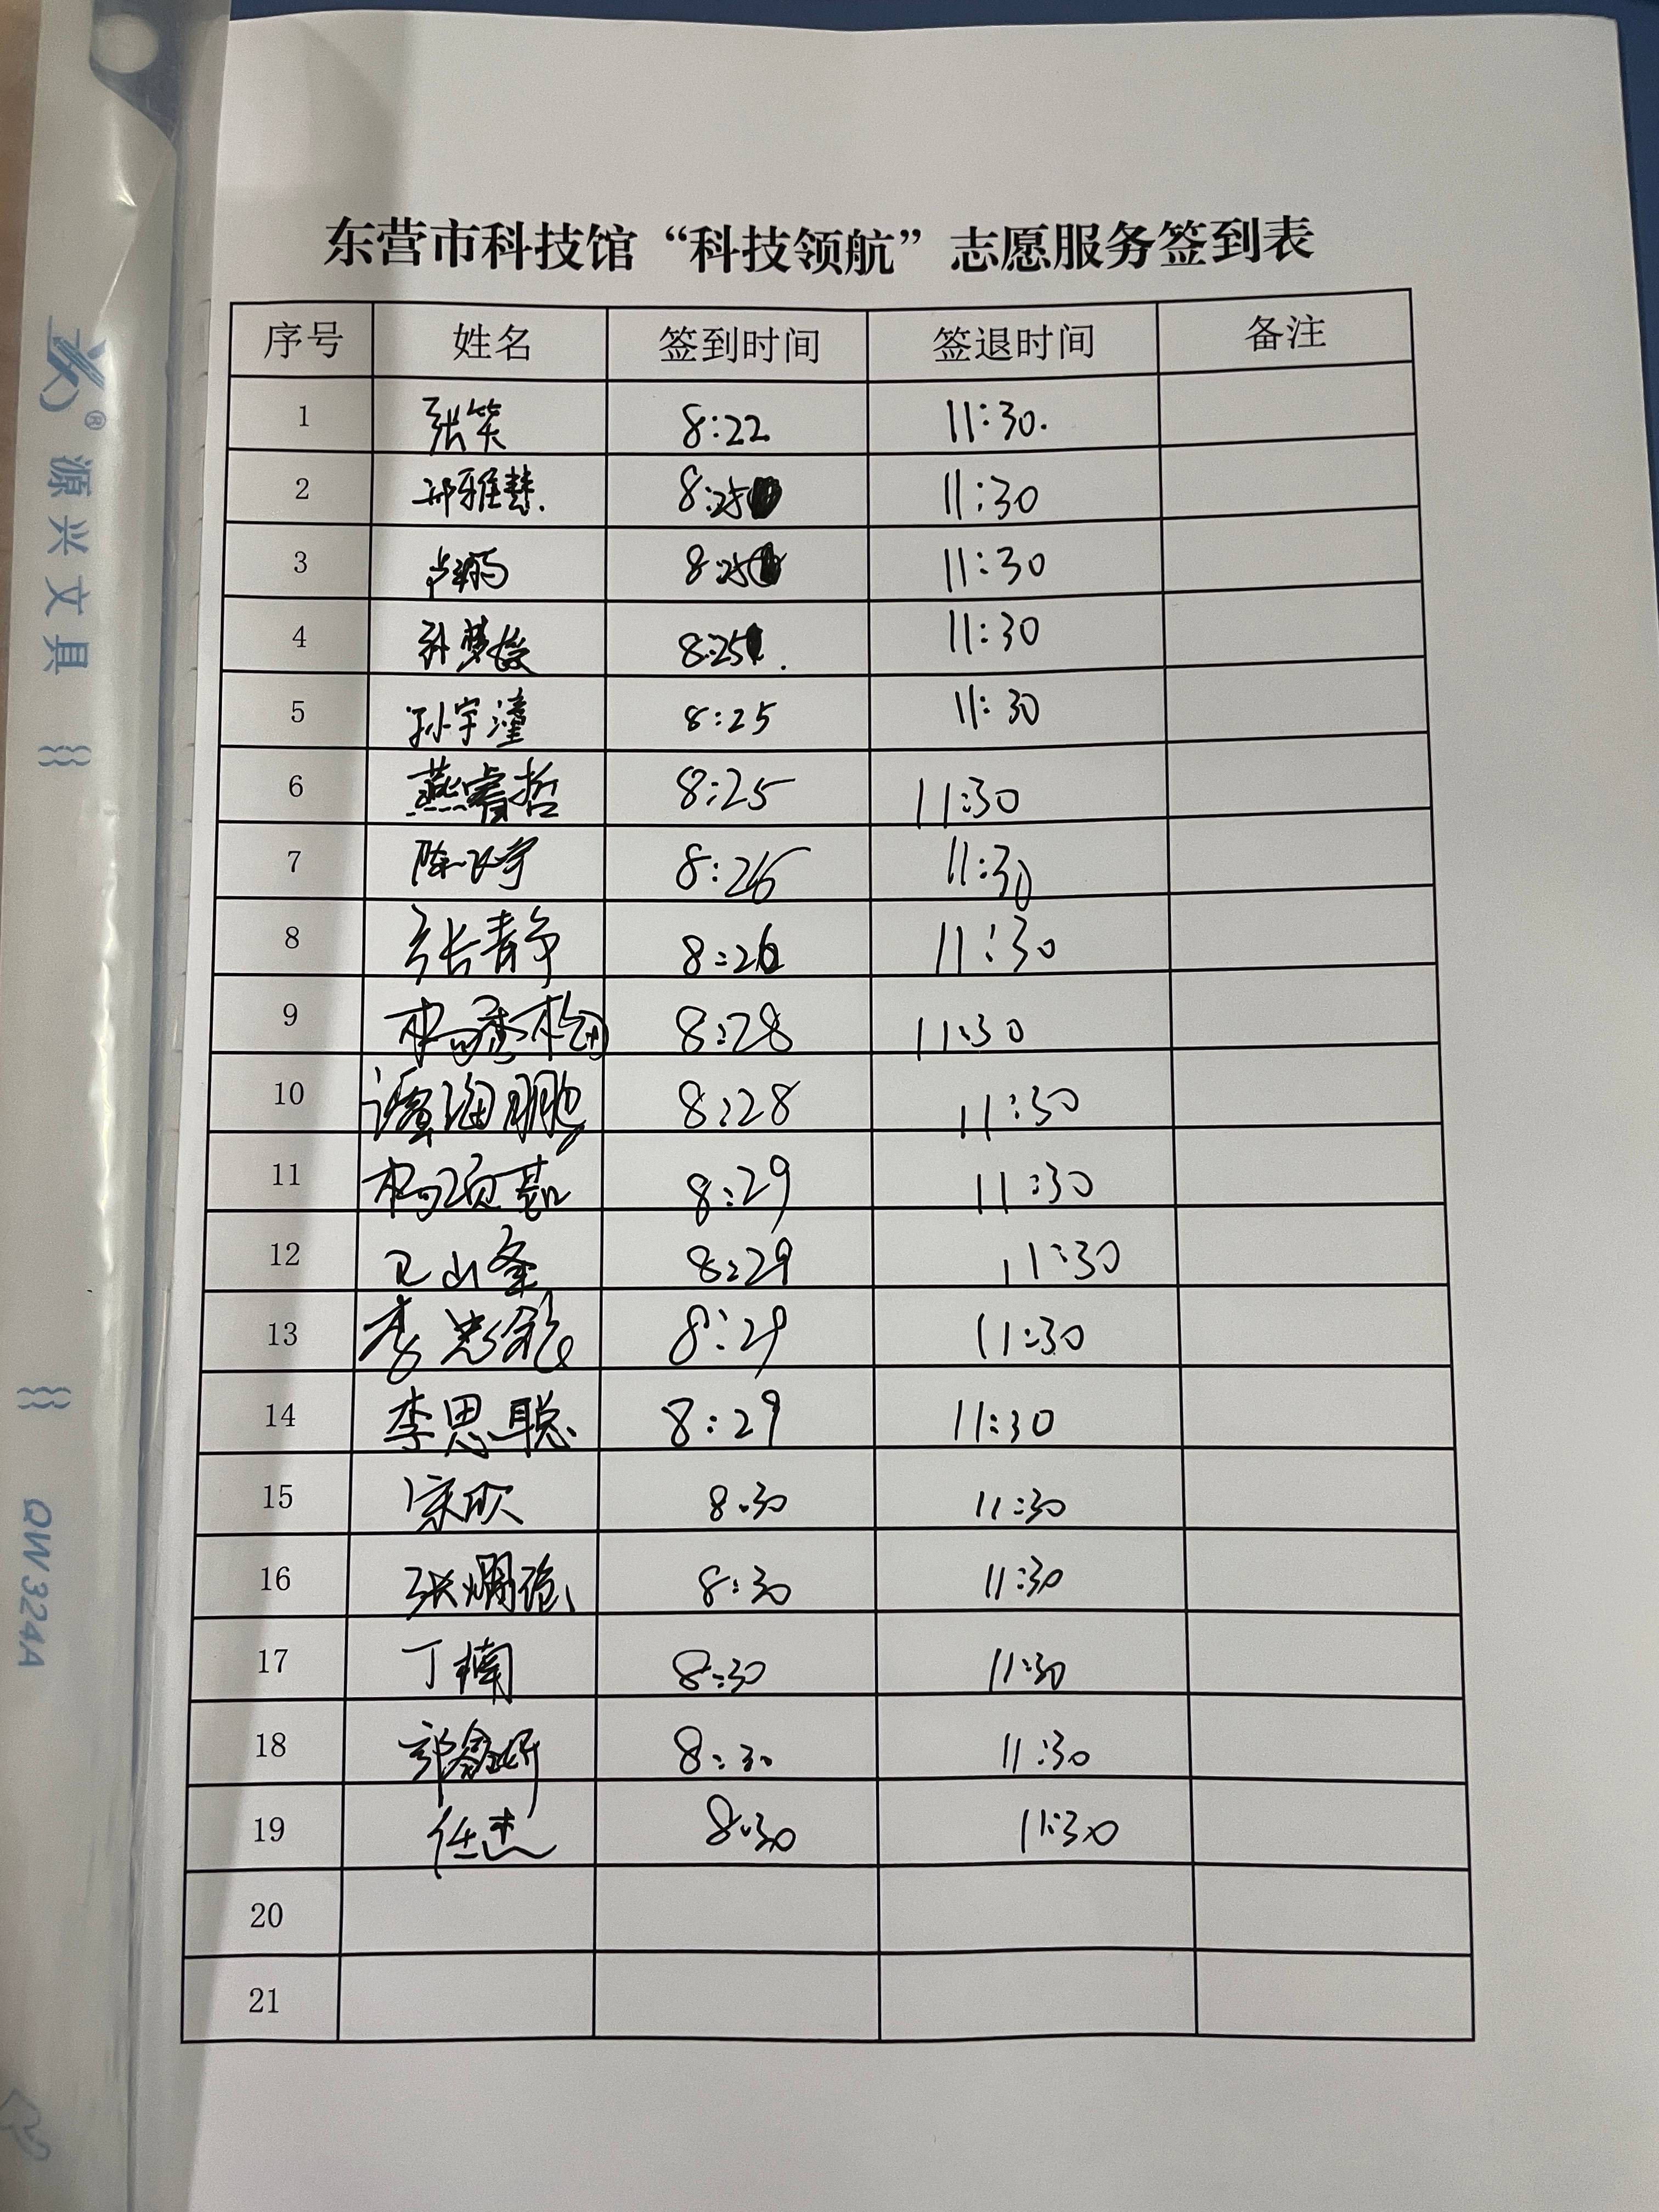 东营市科技馆“科技领航”志愿服务签到表
序号 姓名 签到时间 签退时间 备注
1 张笑 8:22 11:30.
2 雅慧. 8:25 11:30
3 卢 8:25 11:30
4 孙梦 8:25 11:30
5 孙宇潼 8:25 11:30
6 燕睿哲 8:25 11:30
7 陈 8:26 11:30
8 张静 8:26 11:30
9 杨秀梅 8:28 11:30
10 谭海鹏 8:28 11:30
11 杨 8:29 11:30
12 8:29 11:30
13 李 8:29 11:30
14 李思聪 8:29 11:30
15 宋欣 8:30 11:30
16 张 8:30 11:30
17 丁楠 8:30 11:30
18 郭鑫妍 8:30 11:30
19 任杰 8:30 11:30
20
21
源兴文具
QW324A